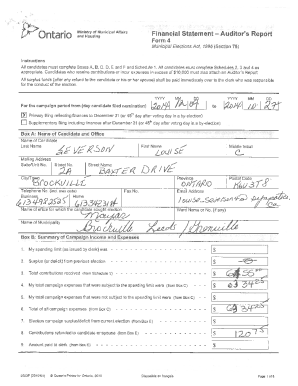 Ontario
Ministry of Municipal Affairs
and Housing
Financial Statement – Auditor's Report
Form 4
Municipal Elections Act, 1996 (Section 78)
Instructions
All candidates must complete Boxes A, B, C, D, E, and F and Schedule 1. All candidates must complete Schedules 2, 3 and 4 as
appropriate. Candidates who receive contributions or incur expenses in excess of $10,000 must also attach an Auditor's Report.
All surplus funds (after any refund to the candidate or his or her spouse) shall be paid immediately over to the clerk who was responsible
for the conduct of the election.
YYYY MM DD YYYY MM DD
For the campaign period from (day candidate filed nomination) 2014 to 2014
Primary filing reflecting finances to December 31 (or 45th day after voting day in a by-election)
Supplementary filing including finances after December 31 (or 45th day after voting day in a by-election)
Box A: Name of Candidate and Office
Name of Candidate
Last Name First Name Middle Initial
SEVERSON LOUISE C
Mailing Address
Suite/Unit No. Street No. Street Name
2A BAXTER DRIVE
City/Town Province Postal Code
BROCKVILLE ONTARIO
Telephone No. Fax No. Email Address
Business Home
6134982525
Name of office for which the candidate sought election Ward Name or No. (if any)
Mayor
Name of Municipality
Brockville Leeds Grenville
Box B: Summary of Campaign Income and Expenses
1. My spending limit (as issued by clerk) was $
2. Surplus (or deficit) from previous election $
3. Total contributions received (from Schedule 1) $
4. My total campaign expenses that were subject to the spending limit were (from Box C) $
5. My total campaign expenses that were not subject to the spending limit were (from Box C) $
6. Total of all campaign expenses (from Box C) $
7. Election campaign surplus/deficit from current election (from Box D) $
8. Contributions refunded to candidate or spouse (from Box D) $ 120.75
9. Amount paid to clerk (from Box D) $
© Queen's Printer for Ontario, 2013
Disponible en français
Page 1 of 8